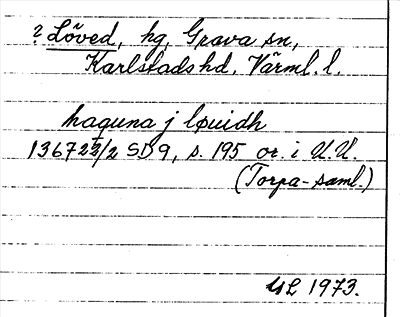 ? Löved, hg, Grava sn,
Karlstads hd. Värml. l.
haguna j løuidh
1367 22/2 SD 9, s. 195 or. i U.U.
(Torpa-saml.)
GL 1973.